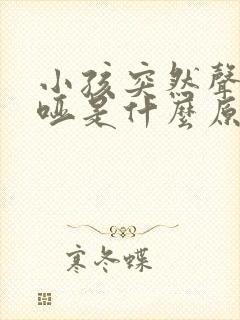 小孩突然聲
啞是什麼原
寒冬蝶